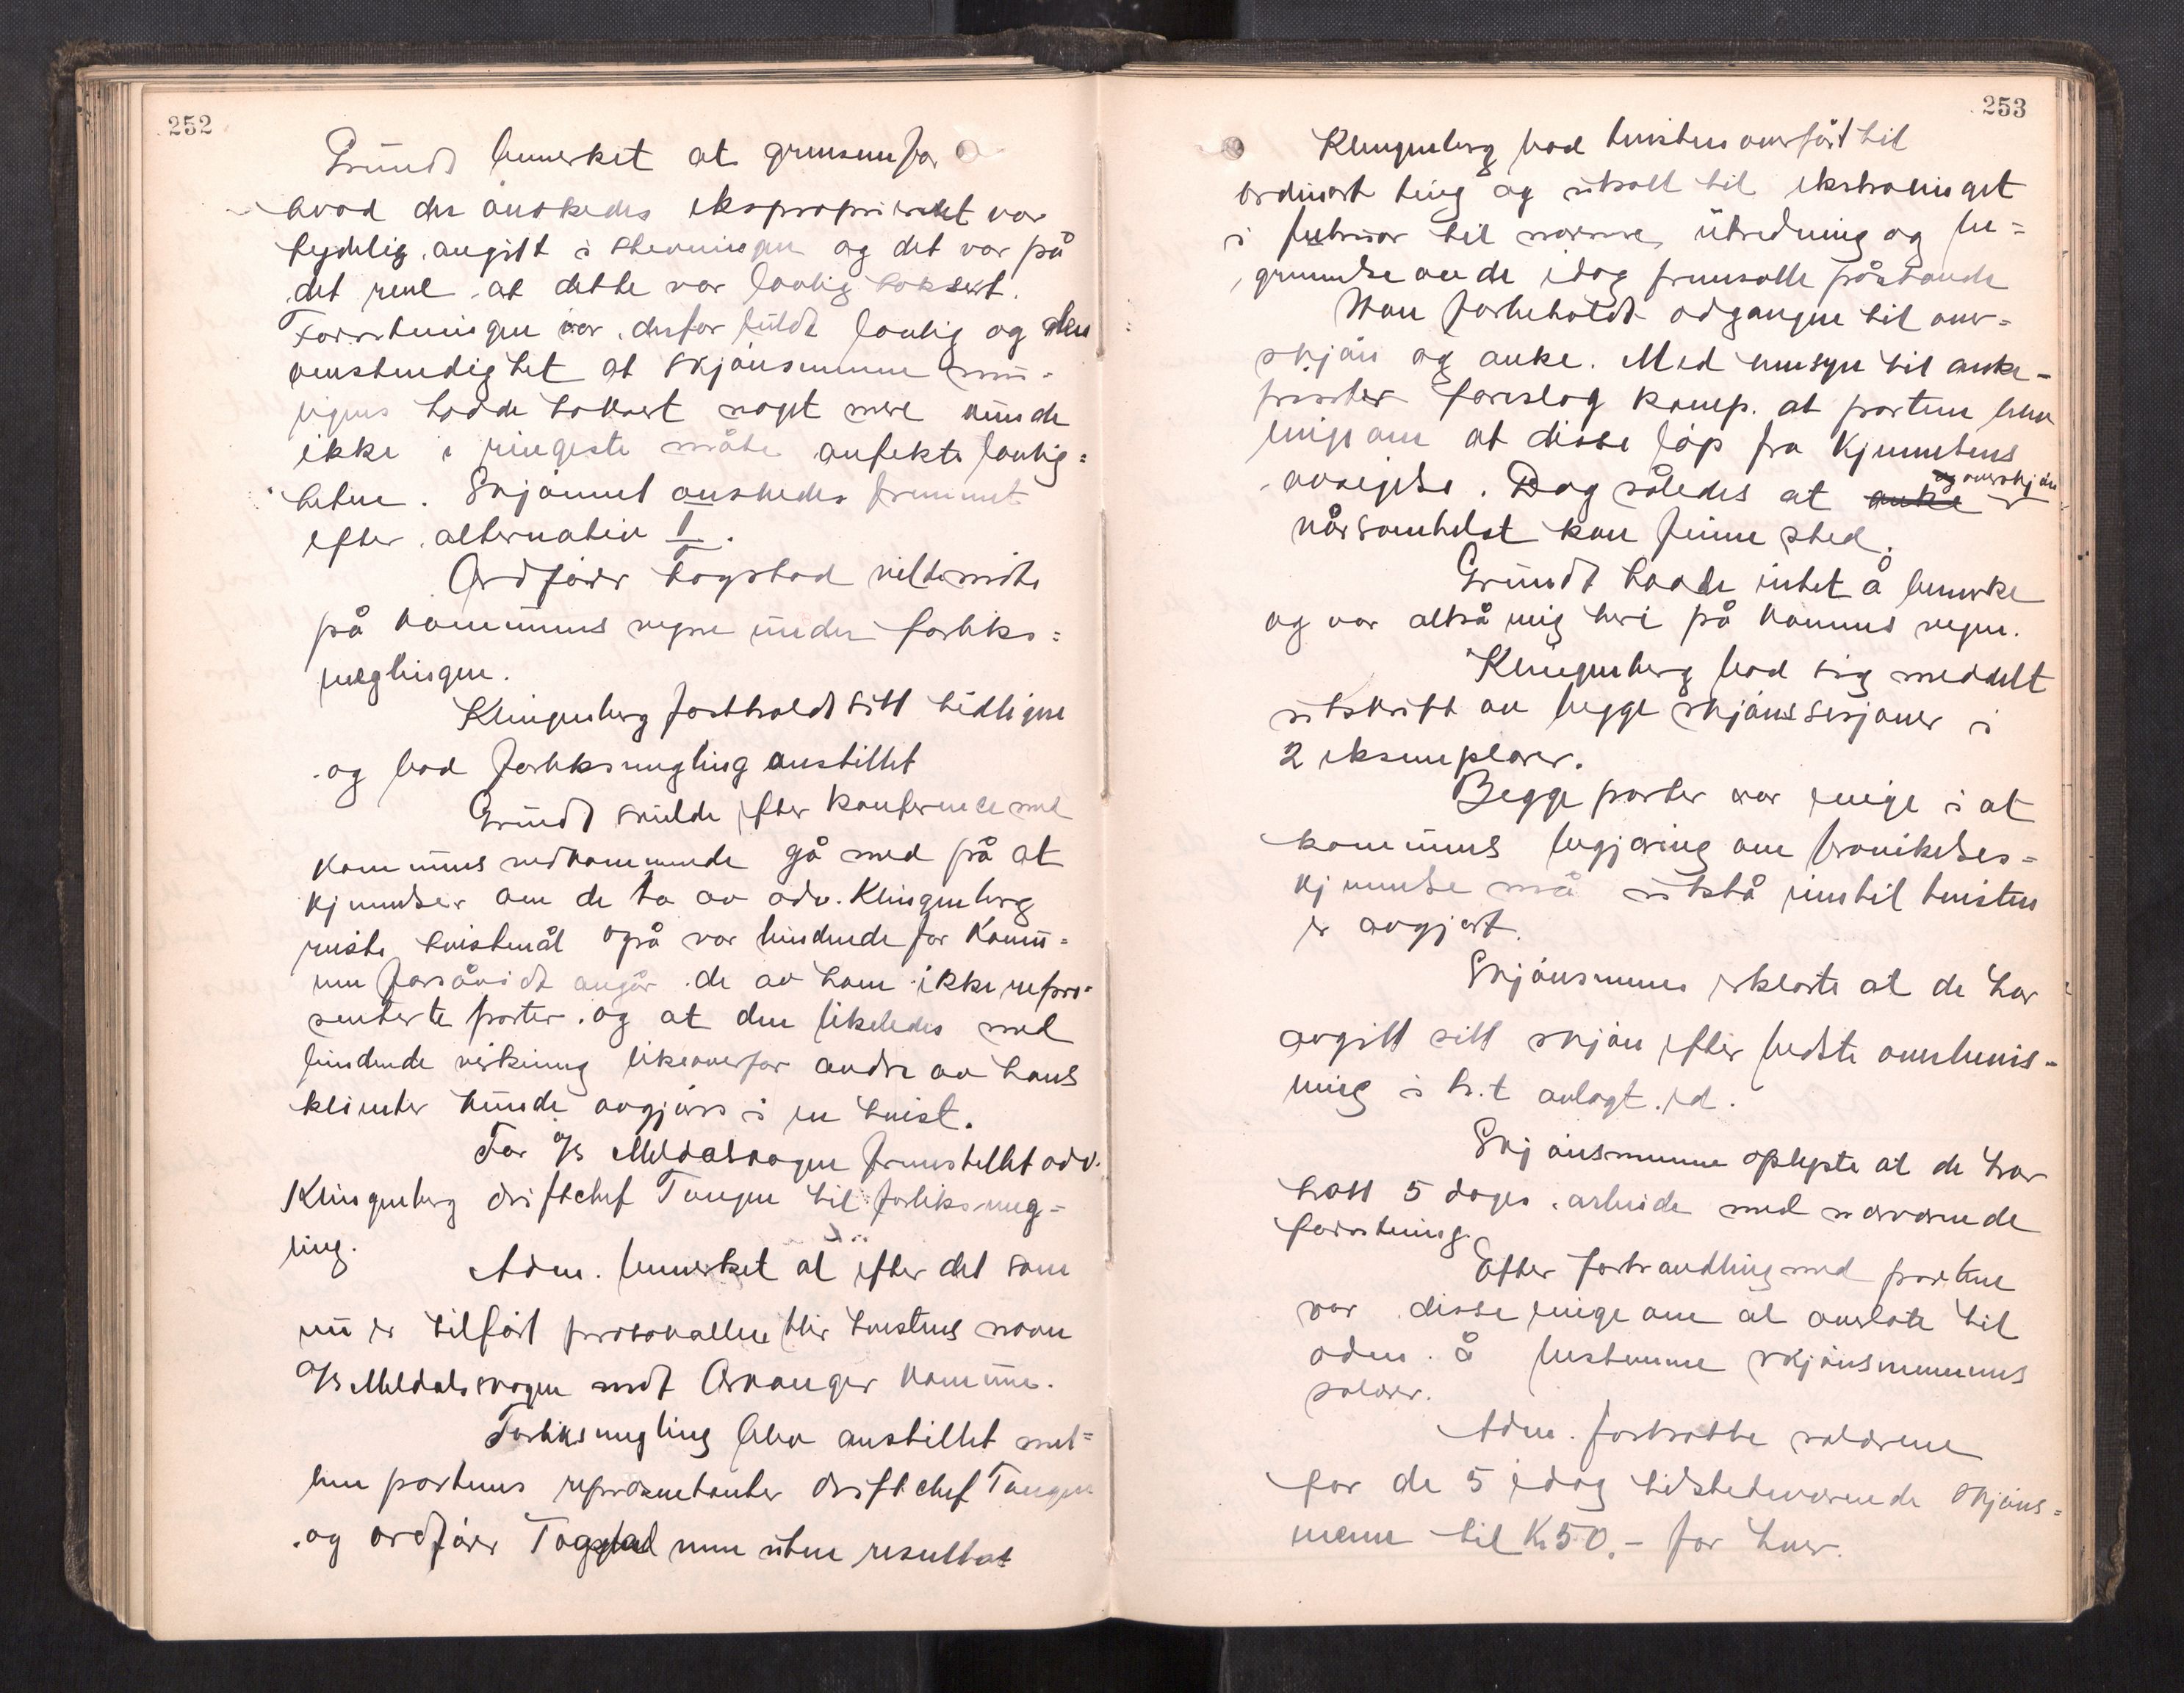 252
Gründt bemerket at grensen for
hvad der ønskedes ekspropriertet var
tydelig angitt i stevningen og det var på
det rene at dette var lovlig taksert.
Forretningen var derfor fuldt lovlig og den
omstendighet at skjønsmennene mu-
ligens hadde taksert noget mere kunde
ikke i ringeste måte anfekte lovlig=
heten. Skjønnet ønskedes fremmet
efter alternativ I.
Ordfører Togstad vilde møte
på kommunens vegne under forliks=
meglingen.
Klingenberg fastholdt sitt tidligere
og bad forliksmegling anstillet
Gründt vilde efter konference med
kommunens vedkommende gå med på at
kjennelser om de to av adv. Klingenberg
reiste tvistemål også var bindende for kommu=
nen forsåvidt angår de av ham ikke repre-
senterte parter og at den likeledes med
bindende virkning likeoverfor andre av hans
klienter kunde avgjøres i en tvist.
For A/S Meldalskogen fremstillet adv.
Klingenberg driftchef Tangen til forliksmeg=
ling.
Adm. bemerket at efter det som
nu er tilført protokollen blir tvistens navn
A/S Meldalskogen mot Orkanger kommune.
Forliksmegling blev anstillet mel=
lem partenes representanter driftchef Tangen
og ordfører Togstad men uten resultat
253
Klingenberg bad tvisten overført til
ordinært ting og utsatt til ekstratinget
i februar til nærmere utredning og be=
grunnelse av de idag fremsatte påstande
Han forbeholdt adgangen til over=
skjøn og anke. Med hensyn til anke-
frister foreslog komp. at partene blev
enige om at disse løp fra kjennelsens
avsigelse. Dog således at og overskjøn
nårsomhelst kan finne sted.
Gründt hadde intet å bemerke
og var altså enig heri på kommunens vegne.
Klingenberg bad sig meddelt
utskrift av begge skjønssesjoner i
2 eksemplarer.
Begge parter var enige i at
kommunens begjæring om fravikelses=
kjennelse må utstå inntil tvisten
er avgjort.
Skjønsmennene erklærte at de har
avgitt sitt skjøn efter bedste overbevis=
ning i h.t avlagt ed.
Skjønsmennene oplyste at de har
hatt 5 dages arbeide med nærværende
forretning.
Efter forhandling med partene
var disse enige om at overlate til
adm. å bestemme skjønsmennenes
salærer.
Adm. fastsatte salærene
for de 5 idag tilstedeværende skjøns=
menn til K. 50.- for hver.